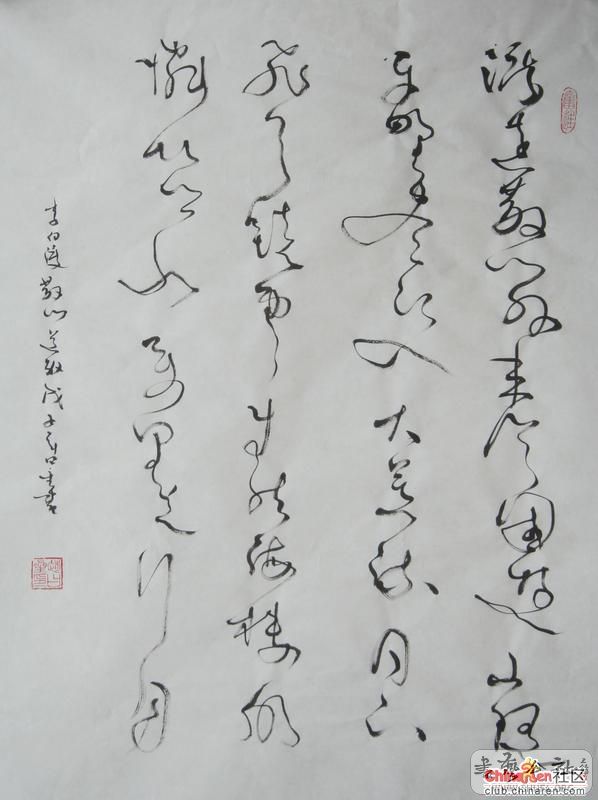 渡远荆门外来从楚国游山随
平野尽江入大荒流月下
飞天镜云生结海楼仍
怜故乡水万里送行舟
李白渡荆门送别戊子
ChinaRen社区
club.chinaren.com